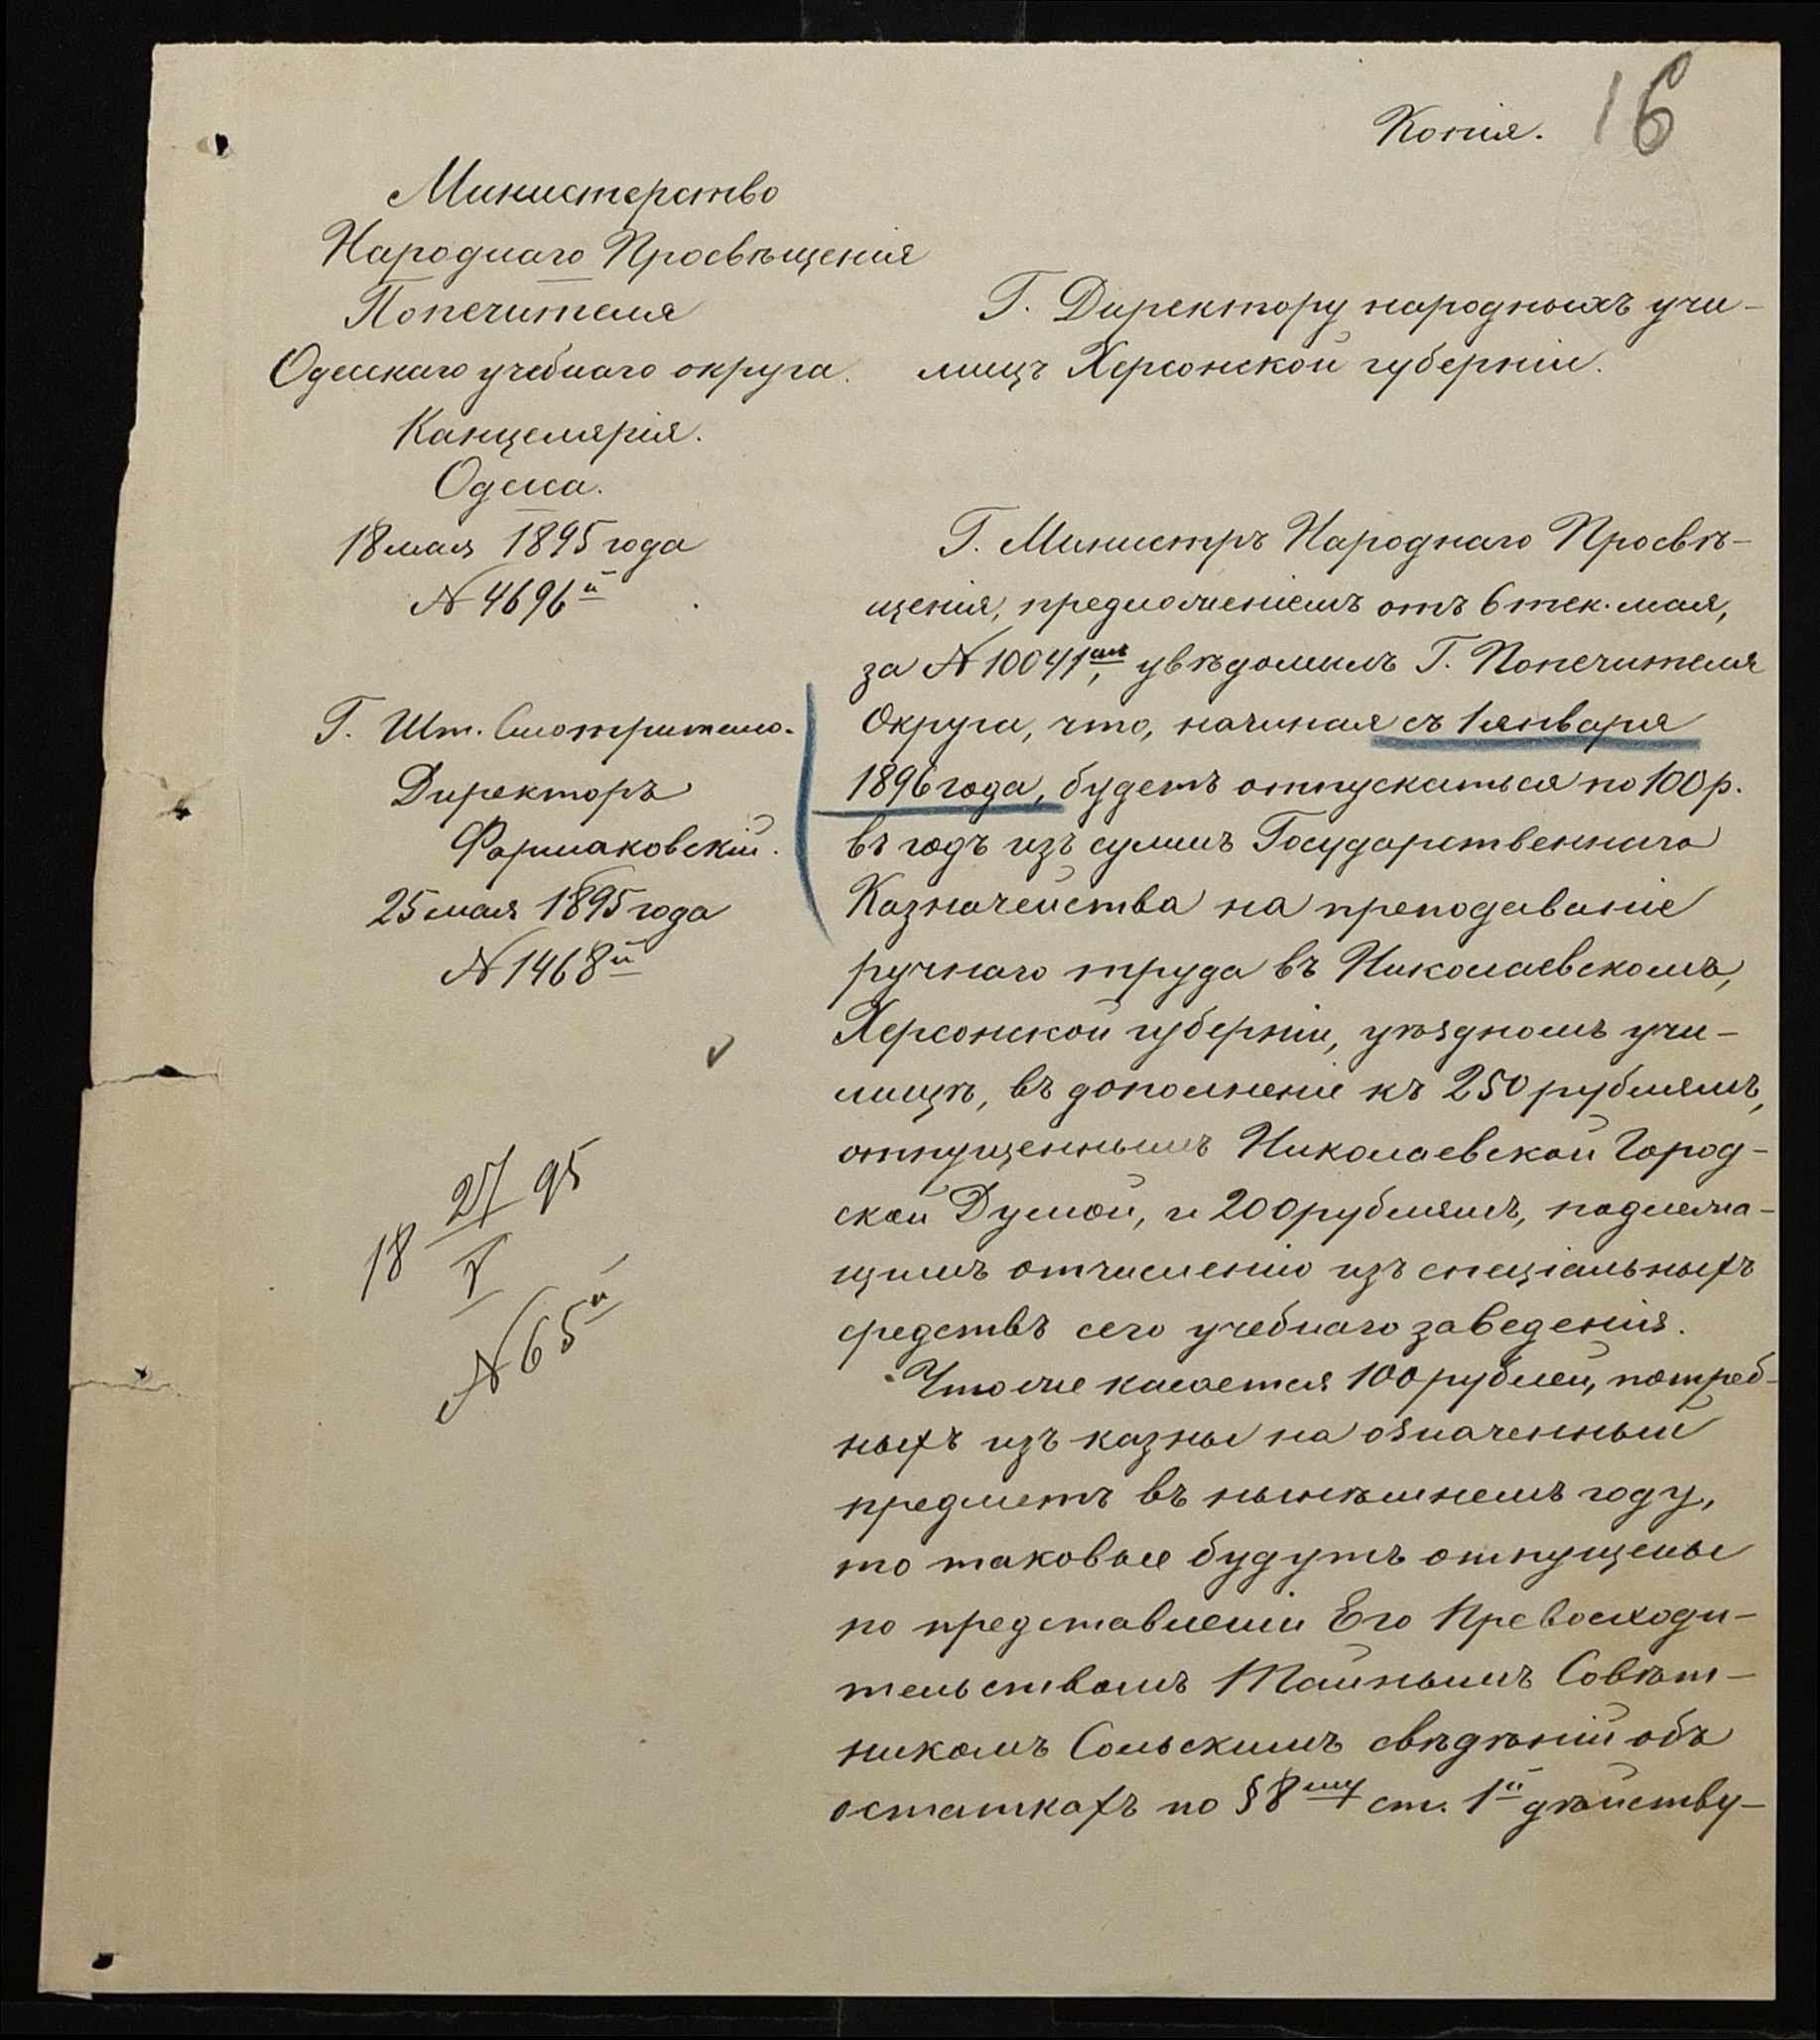 16
Копія.
Министерство
Народнаго Просвѣщенія
Попечителя
Одесскаго учебнаго округа.
Канцелярія.
Одесса.
18 мая 1895 года
№ 4696й
Г. Шт. Смотрителю.
Директоръ
Фармаковскій.
25 мая 1895 года
№ 1468й
18 27/V 95
№ 65й
Г. Директору народныхъ учи-
лищъ Херсонской губерніи.
Г. Министръ Народнаго Просвѣ-
щенія, предложеніемъ отъ 6 тек. мая,
за № 10041мъ, увѣдомилъ Г. Попечителя
Округа, что, начиная съ 1 января
1896 года, будетъ отпускаться по 100 р.
въ годъ изъ суммъ Государственнаго
Казначейства на преподаваніе
ручнаго труда въ Николаевскомъ,
Херсонской губерніи, уѣздномъ учи-
лищѣ, въ дополненіе къ 250 рублямъ,
отпущеннымъ Николаевской Город-
ской Думой, и 200 рублямъ, подлежа-
щимъ отчисленію изъ спеціальныхъ
средствъ сего учебнаго заведенія.
Что же касается 100 рублей, потреб-
ныхъ изъ казны на означенный
предметъ въ нынѣшнемъ году,
то таковые будутъ отпущены
по представленіи Его Превосходи-
тельствомъ Тайнымъ Совѣт-
никомъ Сольскимъ свѣдѣній объ
остаткахъ по § 8му ст. 1й дѣйству-